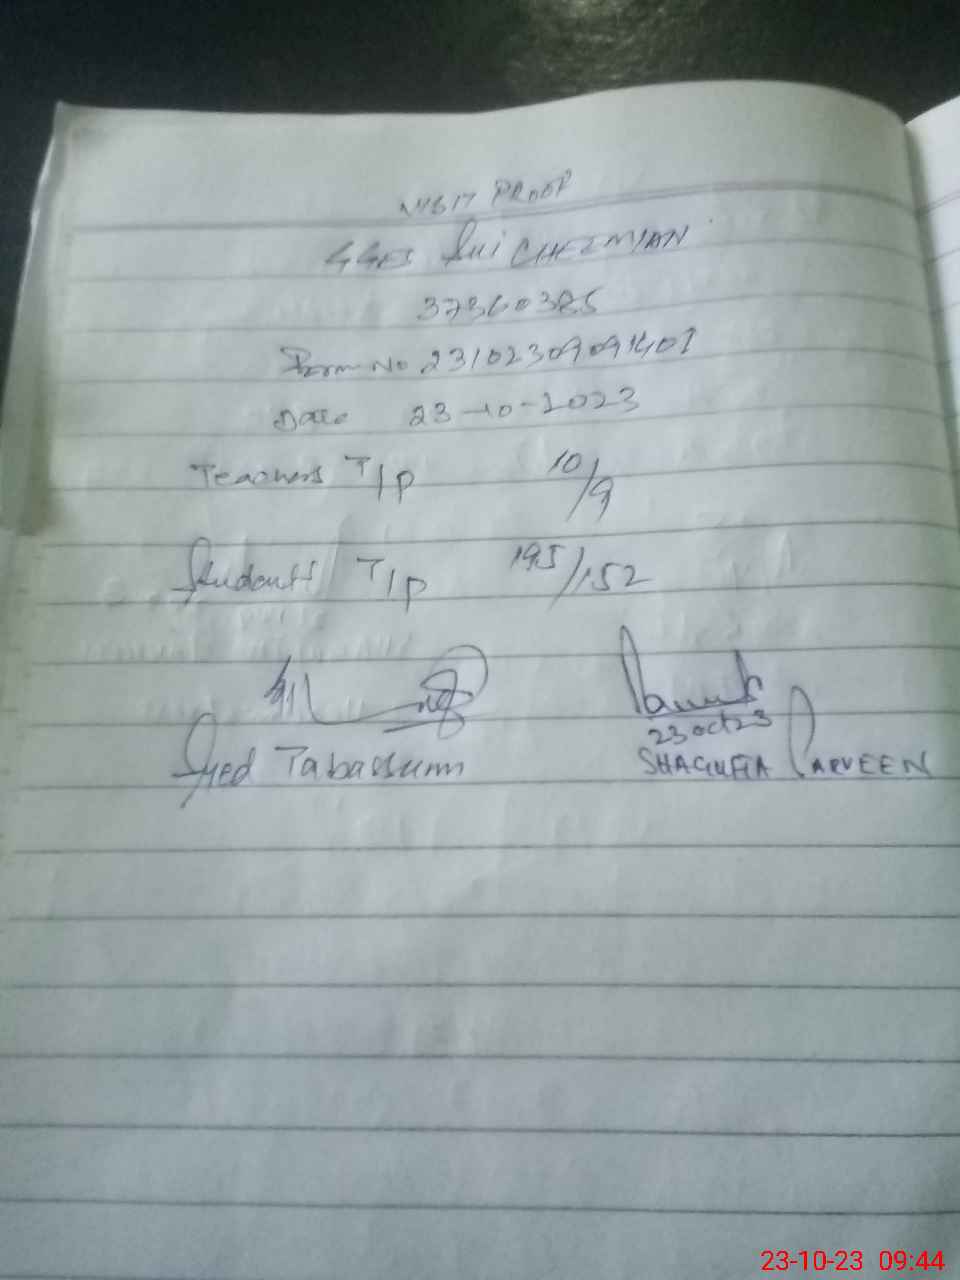 VISIT PROOF
GGES
37360385
No 23102309091401
Date 23-10-2023
Teachers T/P 10/9
Students T/P 195/152
23 oct 23
Syed Tabassum SHAGUFTA PARVEEN
23-10-23 09:44